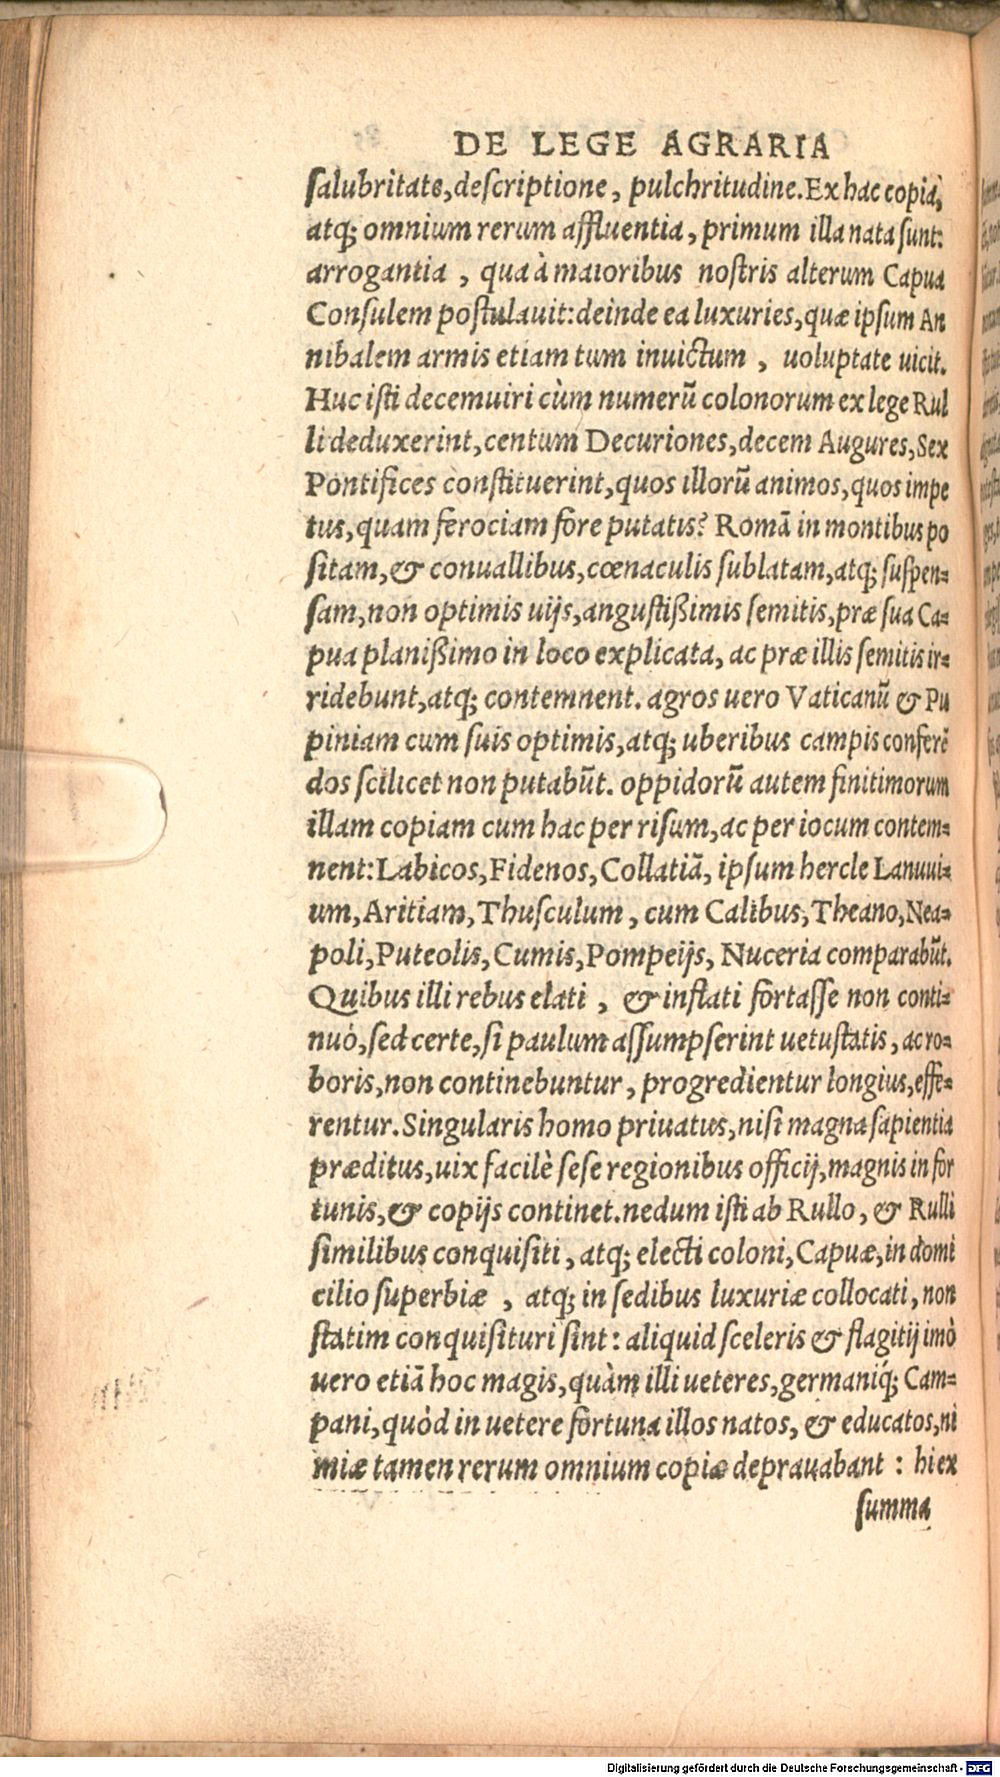 DE LEGE AGRARIA
salubritate, descriptione, pulchritudine. Ex hac copia,
atq; omnium rerum affluentia, primum illa nata sunt:
arrogantia, qua à maioribus nostris alterum Capua
Consulem postulauit: deinde ea luxuries, quæ ipsum An
nibalem armis etiam tum inuictum, uoluptate uicit.
Huc isti decemuiri cùm numerũ colonorum ex lege Rul
li deduxerint, centum Decuriones, decem Augures, Sex
Pontifices constituerint, quos illorũ animos, quos impe
tus, quam ferociam fore putatis? Romã in montibus po
sitam, & conuallibus, cœnaculis sublatam, atq; suspen=
sam, non optimis uijs, angustißimis semitis, præ sua Ca=
pua planißimo in loco explicata, ac præ illis semitis ir=
ridebunt, atq; contemnent. agros uero Vaticanũ & Pu
piniam cum suis optimis, atq; uberibus campis conferẽ
dos scilicet non putabũt. oppidorũ autem finitimorum
illam copiam cum hac per risum, ac per iocum contem=
nent: Labicos, Fidenos, Collatiã, ipsum hercle Lanuui=
um, Aritiam, Thusculum, cum Calibus, Theano, Nea=
poli, Puteolis, Cumis, Pompeijs, Nuceria comparabũt.
Quibus illi rebus elati, & inflati fortasse non conti=
nuò, sed certe, si paulum assumpserint uetustatis, ac ro=
boris, non continebuntur, progredientur longius, effe=
rentur. Singularis homo priuatus, nisi magna sapientia
præditus, uix facilè sese regionibus officij, magnis in for
tunis, & copijs continet. nedum isti ab Rullo, & Rulli
similibus conquisiti, atq; electi coloni, Capuæ, in domi
cilio superbiæ, atq; in sedibus luxuriæ collocati, non
statim conquisituri sint: aliquid sceleris & flagitij imò
uero etiã hoc magis, quàm illi ueteres, germaniq́; Cam=
pani, quòd in uetere fortuna illos natos, & educatos, ni
miæ tamen rerum omnium copiæ deprauabant: hi ex
summa
Digitalisierung gefördert durch die Deutsche Forschungsgemeinschaft - DFG